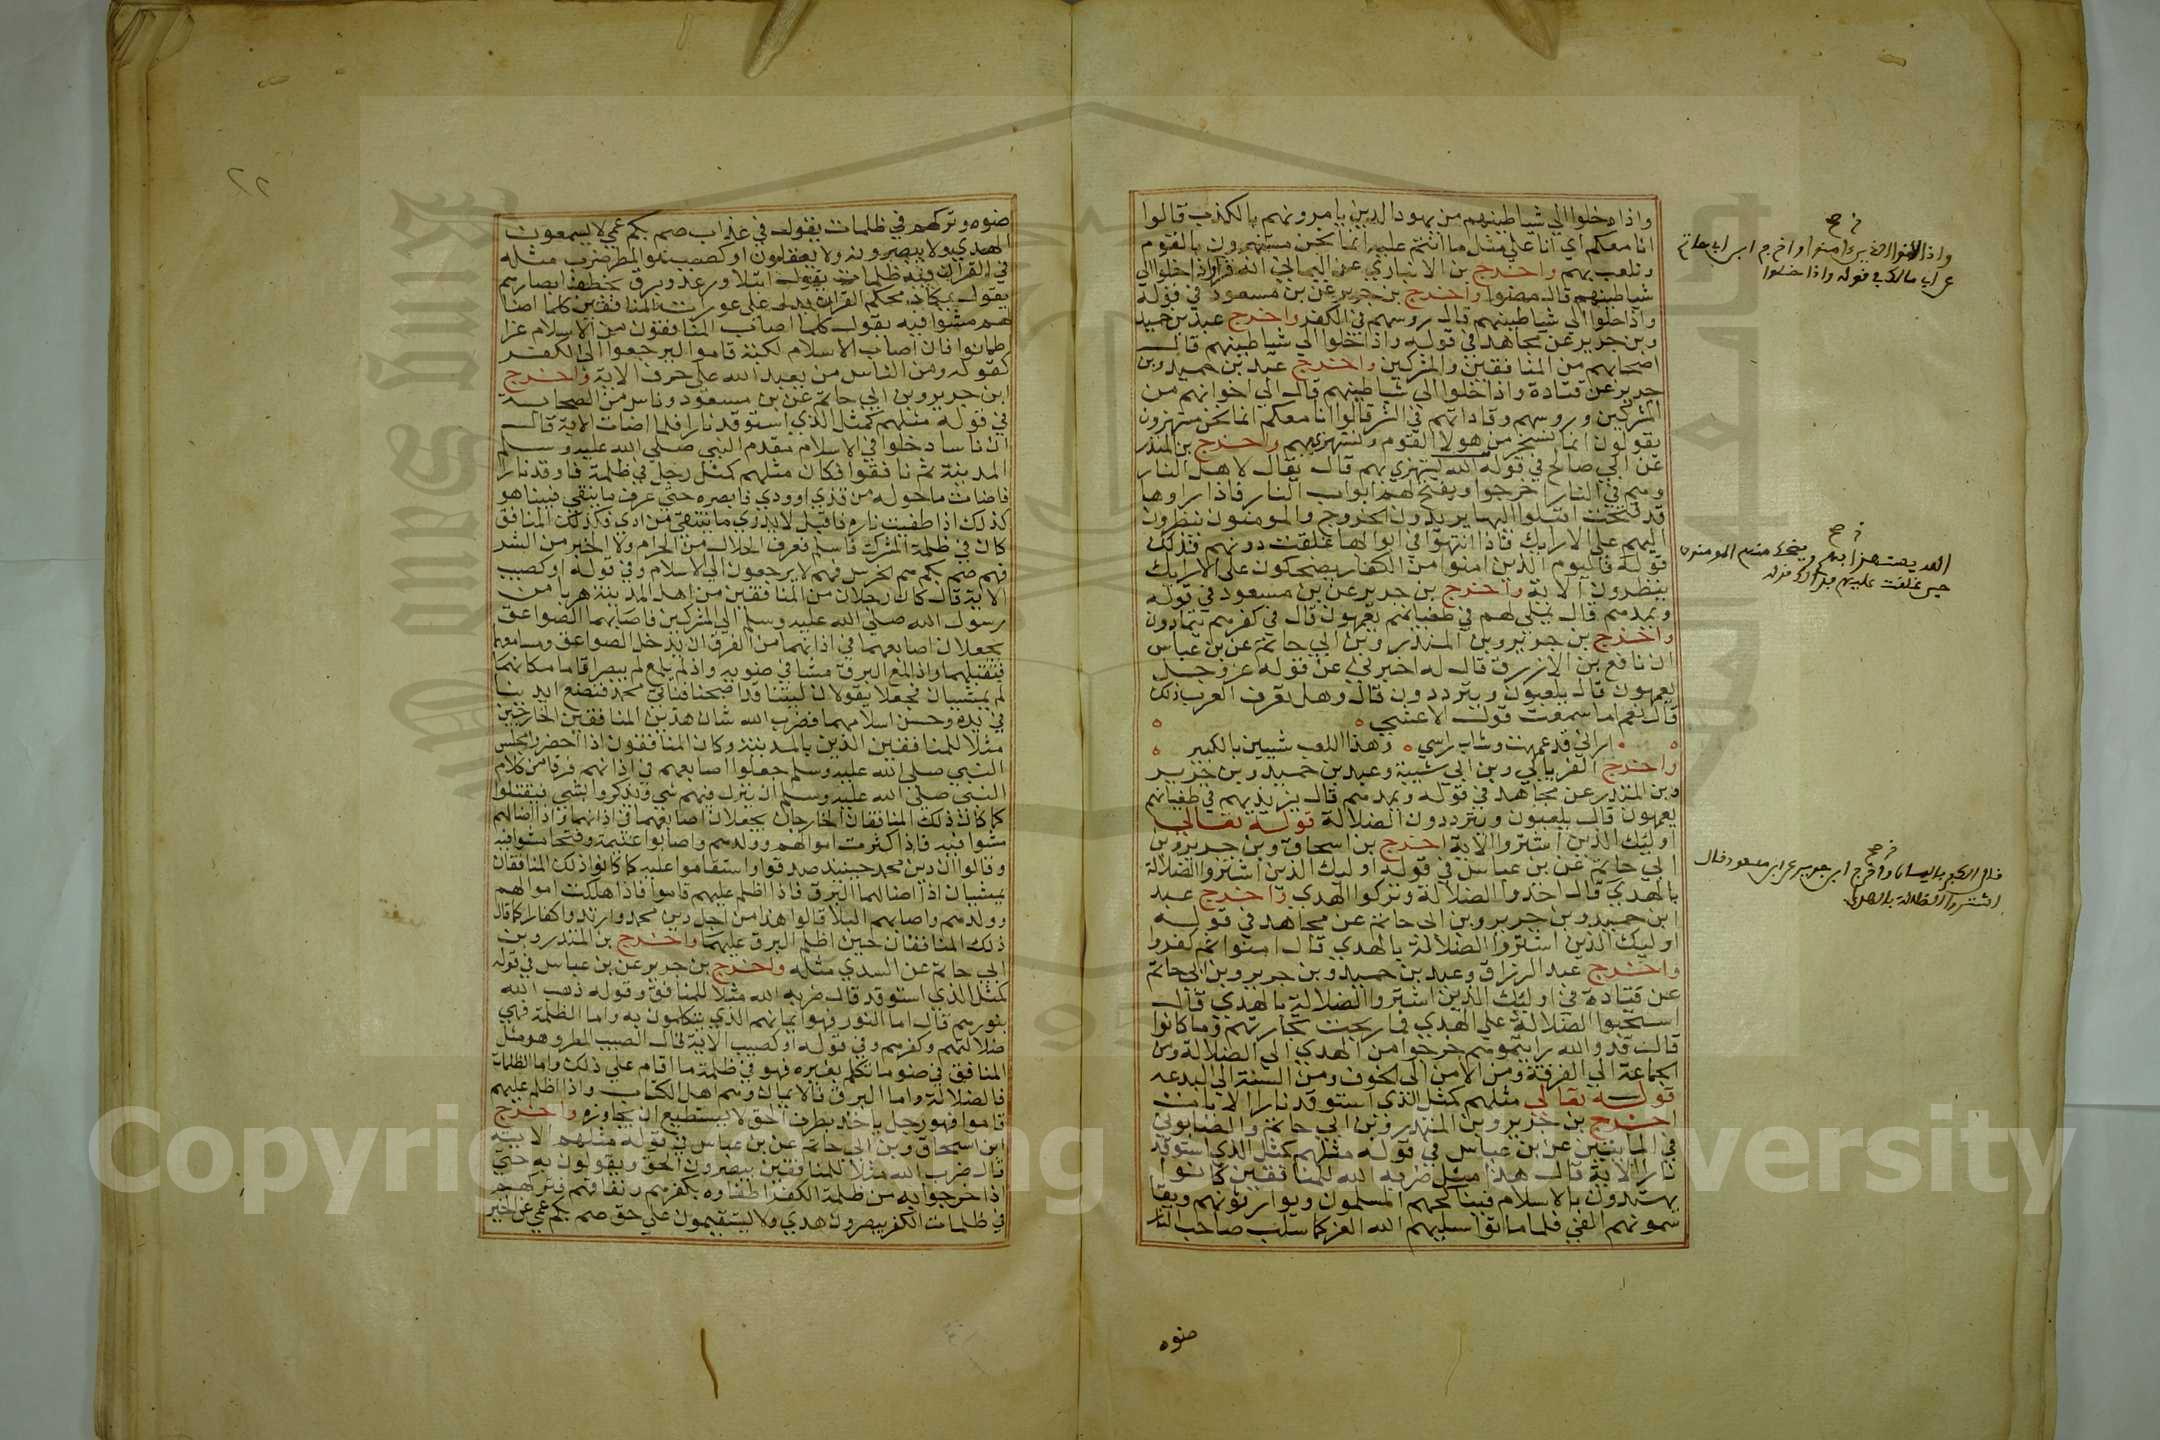 واذا خلوا الي شياطينهم من يهود الذين يامرونهم بالكذب قالوا
انا معكم اي انا علي مثل ما انتم عليه انما نحن مستهزون بالقوم
ونلعب بهم واخرج بن الانباري عن اليماني انه قرا واذا خلوا الي
شياطينهم قال مضوا واخرج بن جرير عن بن مسعود في قوله
واذا خلوا الي شياطينهم قال روسهم في الكفر واخرج عبد بن حميد
وبن جرير عن مجاهد في قوله واذا خلوا الي شياطينهم قال
اصحابهم من المنافقين والمشركين واخرج عبد بن حميد وبن
جرير عن قتادة واذا خلوا الي شياطينهم قال الي اخوانهم من
المشركين وروسهم وقاداتهم في الشر قالوا انا معكم انما نحن مستهزون
يقولون انما نسخر من هولا القوم ونستهزي بهم واخرج بن المنذر
عن ابي صالح في قوله الله يستهزي بهم قال يقال لاهل النار
وهم في النار اخرجوا ويفتح لهم ابواب النار فاذا راوها
قد فتحت اقبلوا اليها يريدون الخروج والمومنون ينظرون
اليهم علي الارايك فاذا انتهوا في ابوابها غلقت دونهم فذلك
قوله فاليوم الذين امنوا من الكفار يضحكون علي الارايك
ينظرون الاية واخرج بن جرير عن بن مسعود في قوله
ويمدهم قال يملي لهم في طغيانهم يعمهون قال في كفرهم يتمادون
واخرج بن جرير وبن المنذر وبن ابي حاتم عن بن عباس
ان نافع بن الازرق قال له اخبرني عن قوله عز وجل
يعمهون قال يلعبون ويترددون قال وهل تعرف العرب ذلك
قال نعم اما سمعت قول الاعشي
اراني قد عمهت وشاب راسي وهذا اللعب شيين بالكبير
واخرج الفريابي وبن ابي شيبة وعبد بن حميد وبن جرير
وبن المنذر عن مجاهد في قوله ويمدهم قال يزيدهم في طغيانهم
يعمهون قال يلعبون ويترددون الضلالة قوله تعالي
اوليك الذين اشتروا الاية اخرج بن اسحاق وبن جرير وبن
ابي حاتم عن بن عباس في قوله اوليك الذين اشتروا الضلالة
بالهدي قال اخذوا الضلالة وتركوا الهدي واخرج عبد
ابن حميد وبن جرير وبن ابي حاتم عن مجاهد في قوله
اوليك الذين اشتروا الضلالة بالهدي قال امنوا ثم كفروا
واخرج عبد الرزاق وعبد بن حميد وبن جرير وبن ابي حاتم
عن قتادة في اوليك الذين اشتروا الضلالة بالهدي قال
استحبوا الضلالة علي الهدي فما ربحت تجارتهم وما كانوا
قال قد والله رايتموهم خرجوا من الهدي الي الضلالة ومن
الجماعة الي الفرقة ومن الامن الي الخوف ومن السنة الي البدعه
قوله تعالي مثلهم كمثل الذي استوقد نارا الايات
اخرج بن جرير وبن المنذر وبن ابي حاتم والصابوني
في المايتين عن بن عباس في قوله مثلهم كمثل الذي استوقد
نارا الاية قال هذا مثل ضربه الله للمنافقين كانوا
يهتدون بالاسلام فيناكحهم المسلمون ويوارثونهم ويقا
سمونهم الفي فلما ماتوا سلبهم الله العز كما سلب صاحب النار
صنوه
واخرج ابن ابي حاتم
عن ابي مالك في قوله واذا خلوا
الله يستهزا بهم ويضحك منهم المومنون
حين غلقت عليهم فذلك قوله
واخرج ابن جرير عن ابن مسعود قال
اشتروا الضلالة بالهدي
٢٢
صنوه وتركهم في ظلمات يقول في عذاب صم بكم عمي لا يسمعون
الهدي ولا يبصرونه ولا يعقلون او كصيب هو المطر ضرب مثله
في القران فيه ظلمات يقول ابتلا ورعد وبرق يخطف ابصارهم
يقول يكاد محكم القران يدل علي عورت المنافقين كلما اضا
لهم مشوا فيه يقول كلما اصاب المنافقون من الاسلام عزا
اطمانوا فان اصاب الاسلام نكبة قاموا ليرجعوا الي الكفر
كقوله ومن الناس من يعبد الله علي حرف الاية واخرج
ابن جرير وبن ابي حاتم عن بن مسعود وناس من الصحابة
في قوله مثلهم كمثل الذي استوقد نارا فلما اضات الاية قال
ان ناسا دخلوا في الاسلام مقدم النبي صلي الله عليه وسلم
المدينة ثم نافقوا فكان مثلهم كمثل رجل في ظلمة فاوقد نارا
فاضات ما حوله من قذي او وذي فابصره حتي عرف ما يتقي فبينا هو
كذلك اذا طفيت ناره فاقبل لا يدري ما يتقي من اذي فكذلك المنافق
كان في ظلمة الشرك فاسلم فعرف الحلال من الحرام ولا الخير من الشر
فهم صم بكم هم الخرس فهم لا يرجعون الي الاسلام وفي قوله او كصيب
الاية قال كان رجلان من المنافقين من اهل المدينة هربا من
رسول الله صلي الله عليه وسلم الي المشركين فاصابهما الصواعق
يجعلان اصابعهما في اذانهما من الفرق ان يدخل الصواعق ومسامعهما
فتقتلهما واذا لمع البرق مشيا في ضويه واذ لم يلمع لم يبصرا قاما مكانهما
لم يمشيان فجعلا يقولان ليتنا قد اصبحنا فناتي محمد فنضع ايدينا
في يده وحسن اسلامهما فضرب الله شان هذين المنافقين الخارجين
مثلا للمنافقين الذين بالمدينة وكان المنافقون اذا احضروا مجلس
النبي صلي الله عليه وسلم جعلوا اصابعهم في اذانهم فرقا من كلام
النبي صلي الله عليه وسلم ان ينزل فيهم شي ويذكروا بشي فيقتلوا
كما كان ذلك المنافقان الخارجان يجعلان اصابعهما في اذانهما واذا اضالهم
مشوا فيه فاذا كثرت اموالهم وولدهم واصابوا غنيمة وفتحا مشوا فيه
وقالوا ان دين محمد حينيذ صدق واستقاموا عليه كما كانوا ذلك المنافقان
يمشيان اذا اضا لهما البرق فاذا اظلم عليهم قاموا فاذا هلكت اموالهم
وولدهم واصابهم البلا قالوا هذا من اجل دين محمد وارتدوا كفارا كما قال
ذلك المنافقان حين اظلم البرق عليهما واخرج بن المنذر وبن
ابي حاتم عن السدي مثله واخرج بن جرير عن بن عباس في قوله
كمثل الذي استوقد قال ضربه الله مثلا للمنافق وقوله ذهب الله
بنورهم قال اما النور فهو ايمانهم الذي يتكلمون به واما الظلمة فهي
ضلالتهم وكفرهم وفي قوله او كصيب الاية قال الصيب المطر وهو مثل
المنافق في ضوه ما تكلم بغيره فهو في ظلمة ما اقام علي ذلك واما الظلمات
فالضلالة واما البرق فالايمان وهم اهل الكتاب واذا اظلم عليهم
قاموا فهو رجل ياخذ بطرف الحق لا يستطيع ان يجاوزه واخرج
ابن اسحاق وبن ابي حاتم عن بن عباس في قوله مثلهم الاية
قال ضرب الله مثلا للمنافقين يبصرون الحق ويقولون به حتي
اذا خرجوا به من ظلمة الكفر اطفاوه بكفرهم ونفاقهم فتركهم
في ظلمات الكفر يبصرون هدي ولا يستقيمون علي حق صم بكم عمي عن الخير
Copyright King Saud University